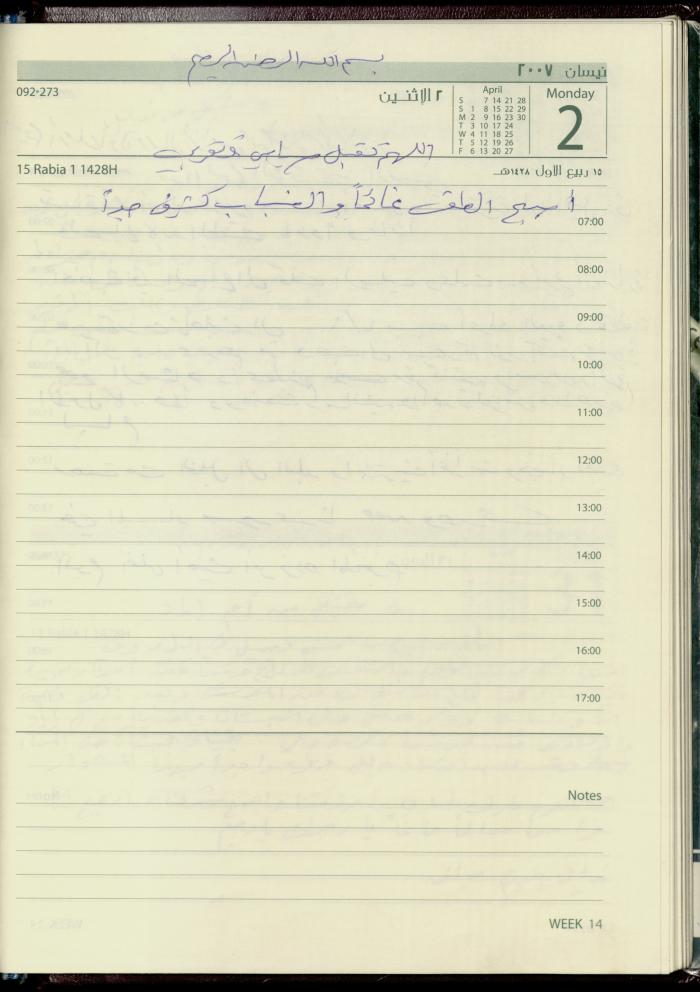 بسم الله الرحمن الرحيم
نيسان ٢٠٠٧
092-273
٢ الإثنــين
April
S 7 14 21 28
S 1 8 15 22 29
M 2 9 16 23 30
T 3 10 17 24
W 4 11 18 25
T 5 12 19 26
F 6 13 20 27
Monday
2
اللهم تقبل صيامي
15 Rabia 1 1428H
١٥ ربيع الأول ١٤٢٨هـ
أصبح الطقس غائماً و الضباب كثيف جداً
07:00
08:00
09:00
10:00
11:00
12:00
13:00
14:00
15:00
16:00
17:00
Notes
WEEK 14